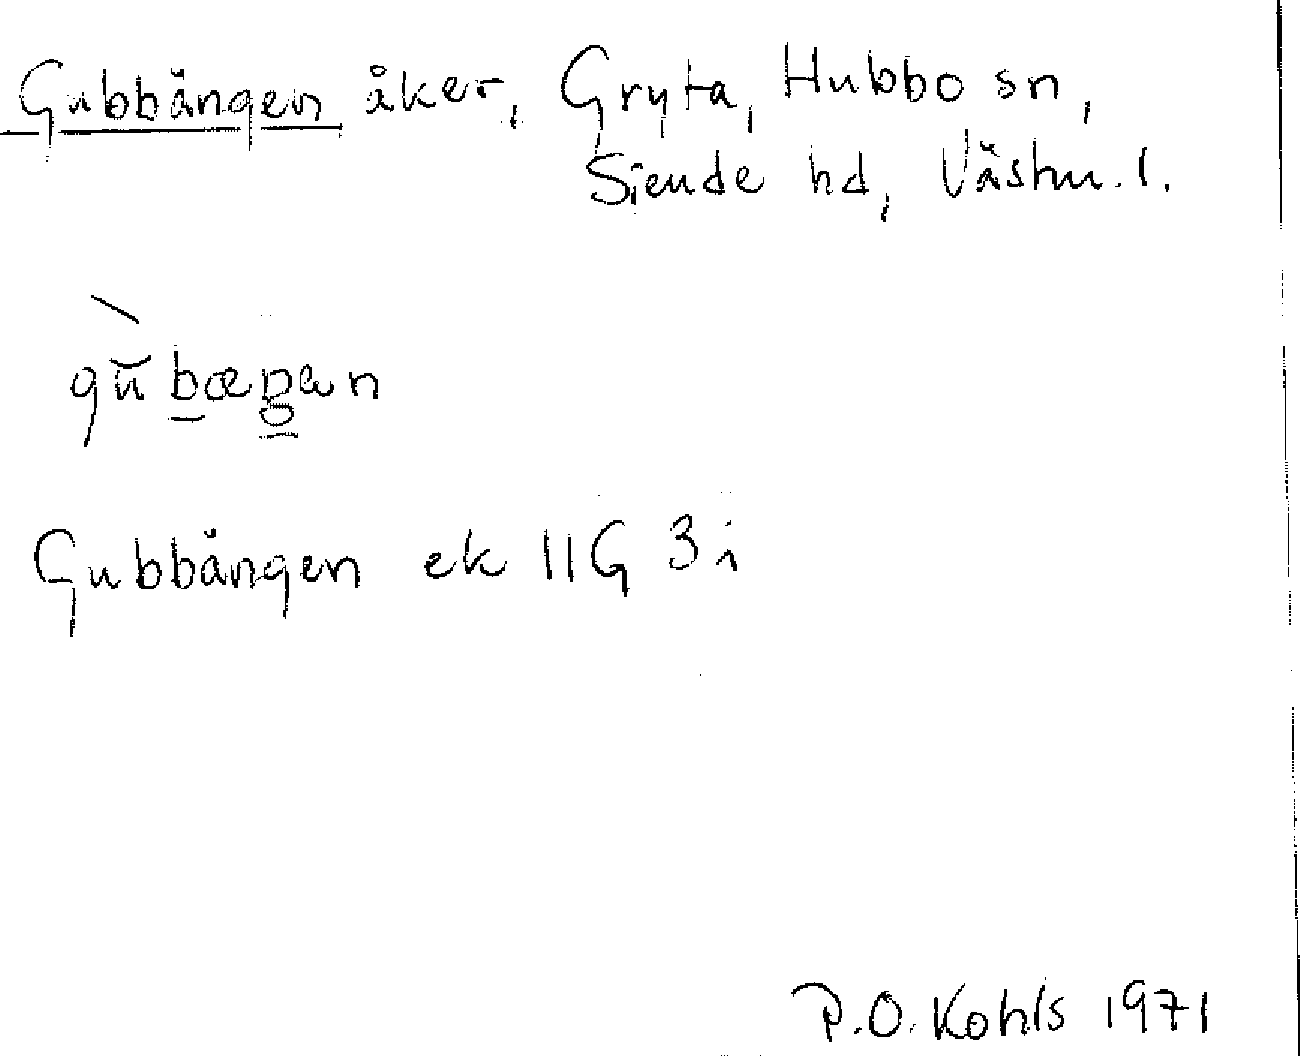 Gubbängen åker, Gryta, Hubbo sn,
Siende hd, Västm. l.
Gubbängen ek 11G 3i
P.O. Kohls 1971